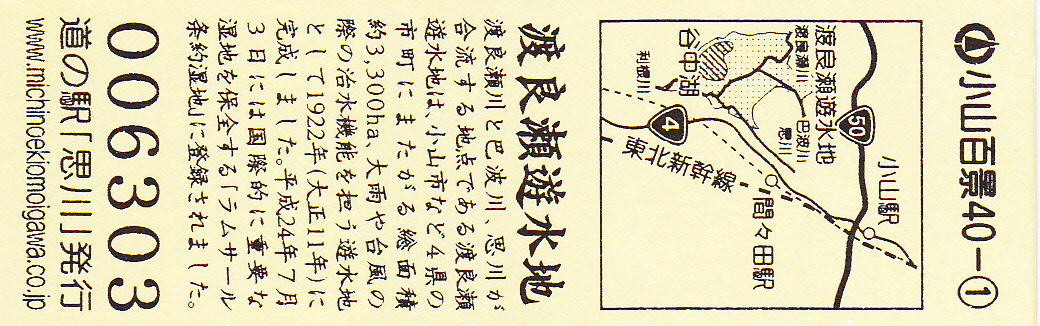 小山百景40−①
渡良瀬遊水地
渡良瀬川
谷中湖
利根川
巴波川
思川
50
4
小山駅
間々田駅
東北新幹線
渡良瀬遊水地
渡良瀬川と巴波川、思川が
合流する地点である渡良瀬
遊水地は、小山市など4県の
市町にまたがる総面積
約3,300ha、大雨や台風の
際の治水機能を担う遊水地
として1922年(大正11年)に
完成しました。平成24年7月
3日には国際的に重要な
湿地を保全する「ラムサール
条約湿地」に登録されました。
006303
道の駅「思川」発行
www.michinoekiomoigawa.co.jp